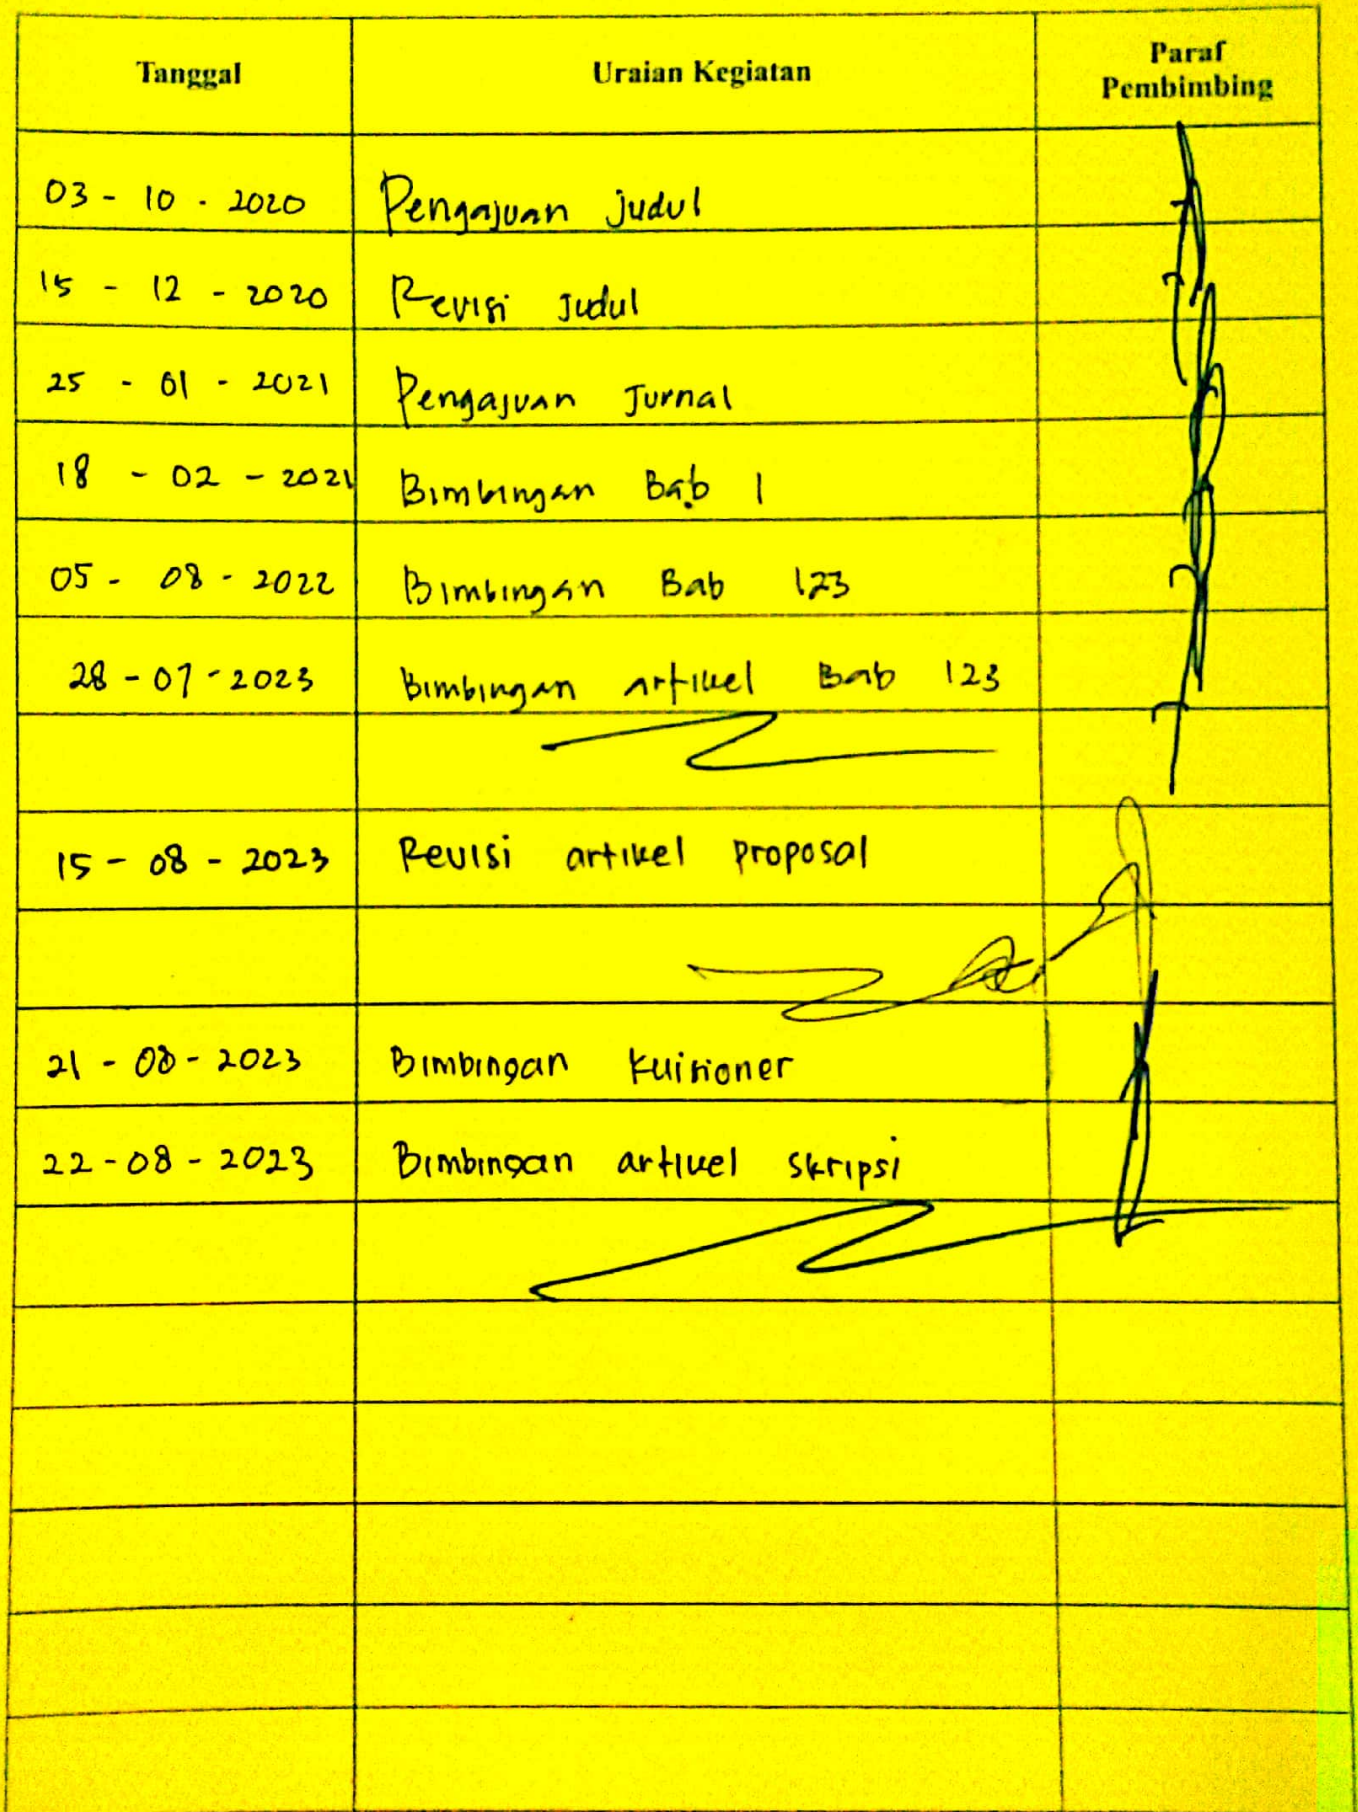 Tanggal Uraian Kegiatan Paraf Pembimbing
03 - 10 - 2020 Pengajuan judul
15 - 12 - 2020 Revisi Judul
25 - 01 - 2021 Pengajuan Jurnal
18 - 02 - 2021 Bimbingan Bab 1
05 - 08 - 2022 Bimbingan Bab 123
28 - 07 - 2023 Bimbingan artikel Bab 123
15 - 08 - 2023 Revisi artikel proposal
21 - 08 - 2023 Bimbingan Kuisioner
22 - 08 - 2023 Bimbingan artikel skripsi